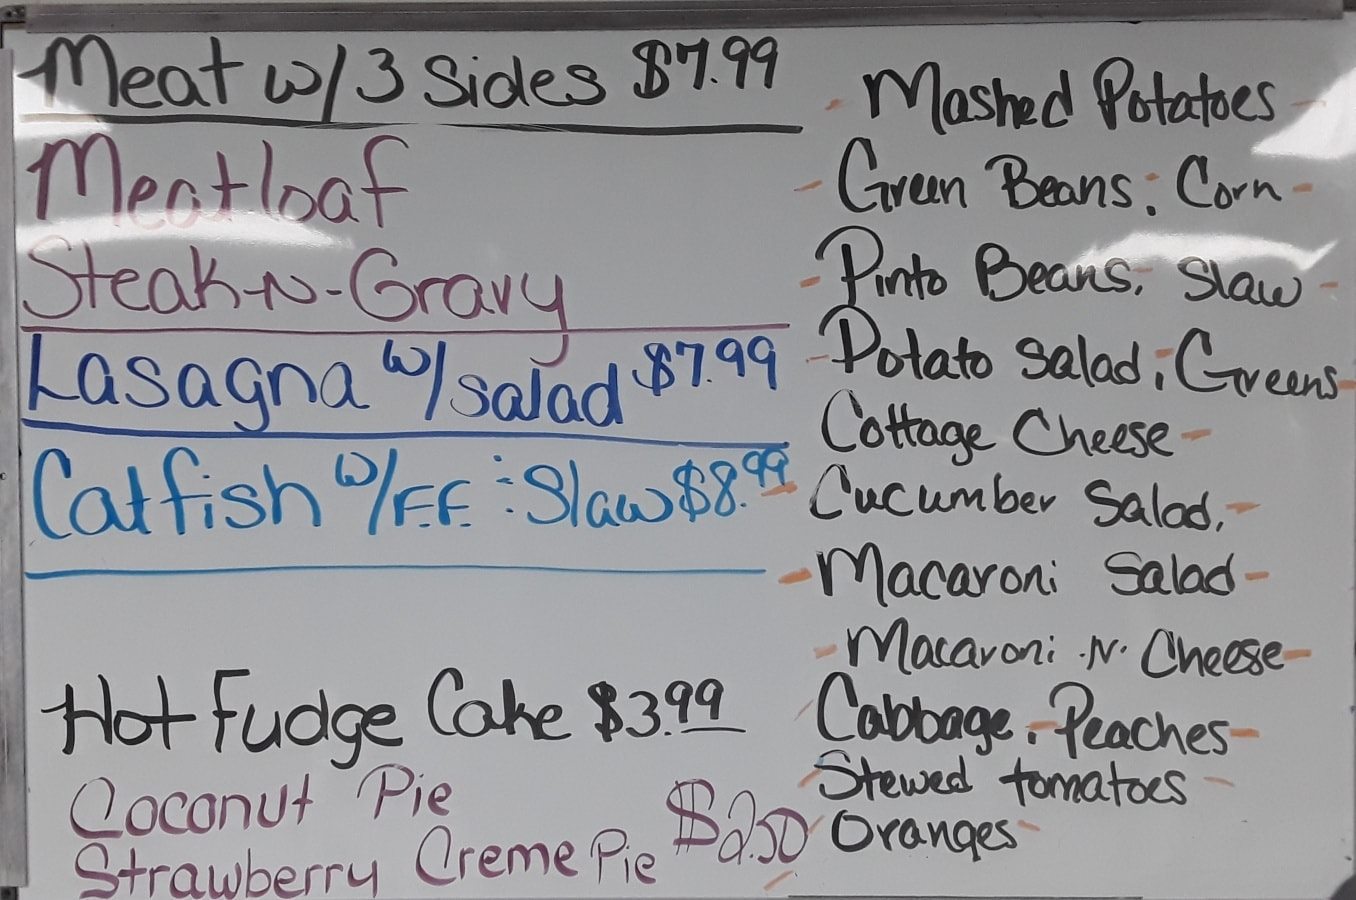 Meat w/3 Sides $7.99
Meatloaf
Steak-N-Gravy
Lasagna w/salad $7.99
Catfish w/F.F. : Slaw $8.99
Hot Fudge Cake $3.99
Coconut Pie
Strawberry Creme Pie $2.50
- Mashed Potatoes -
- Green Beans : Corn -
- Pinto Beans, Slaw -
- Potato Salad ; Greens -
Cottage Cheese -
- Cucumber Salad, -
- Macaroni Salad -
- Macaroni -N- Cheese -
Cabbage, - Peaches -
Stewed tomatoes -
Oranges -